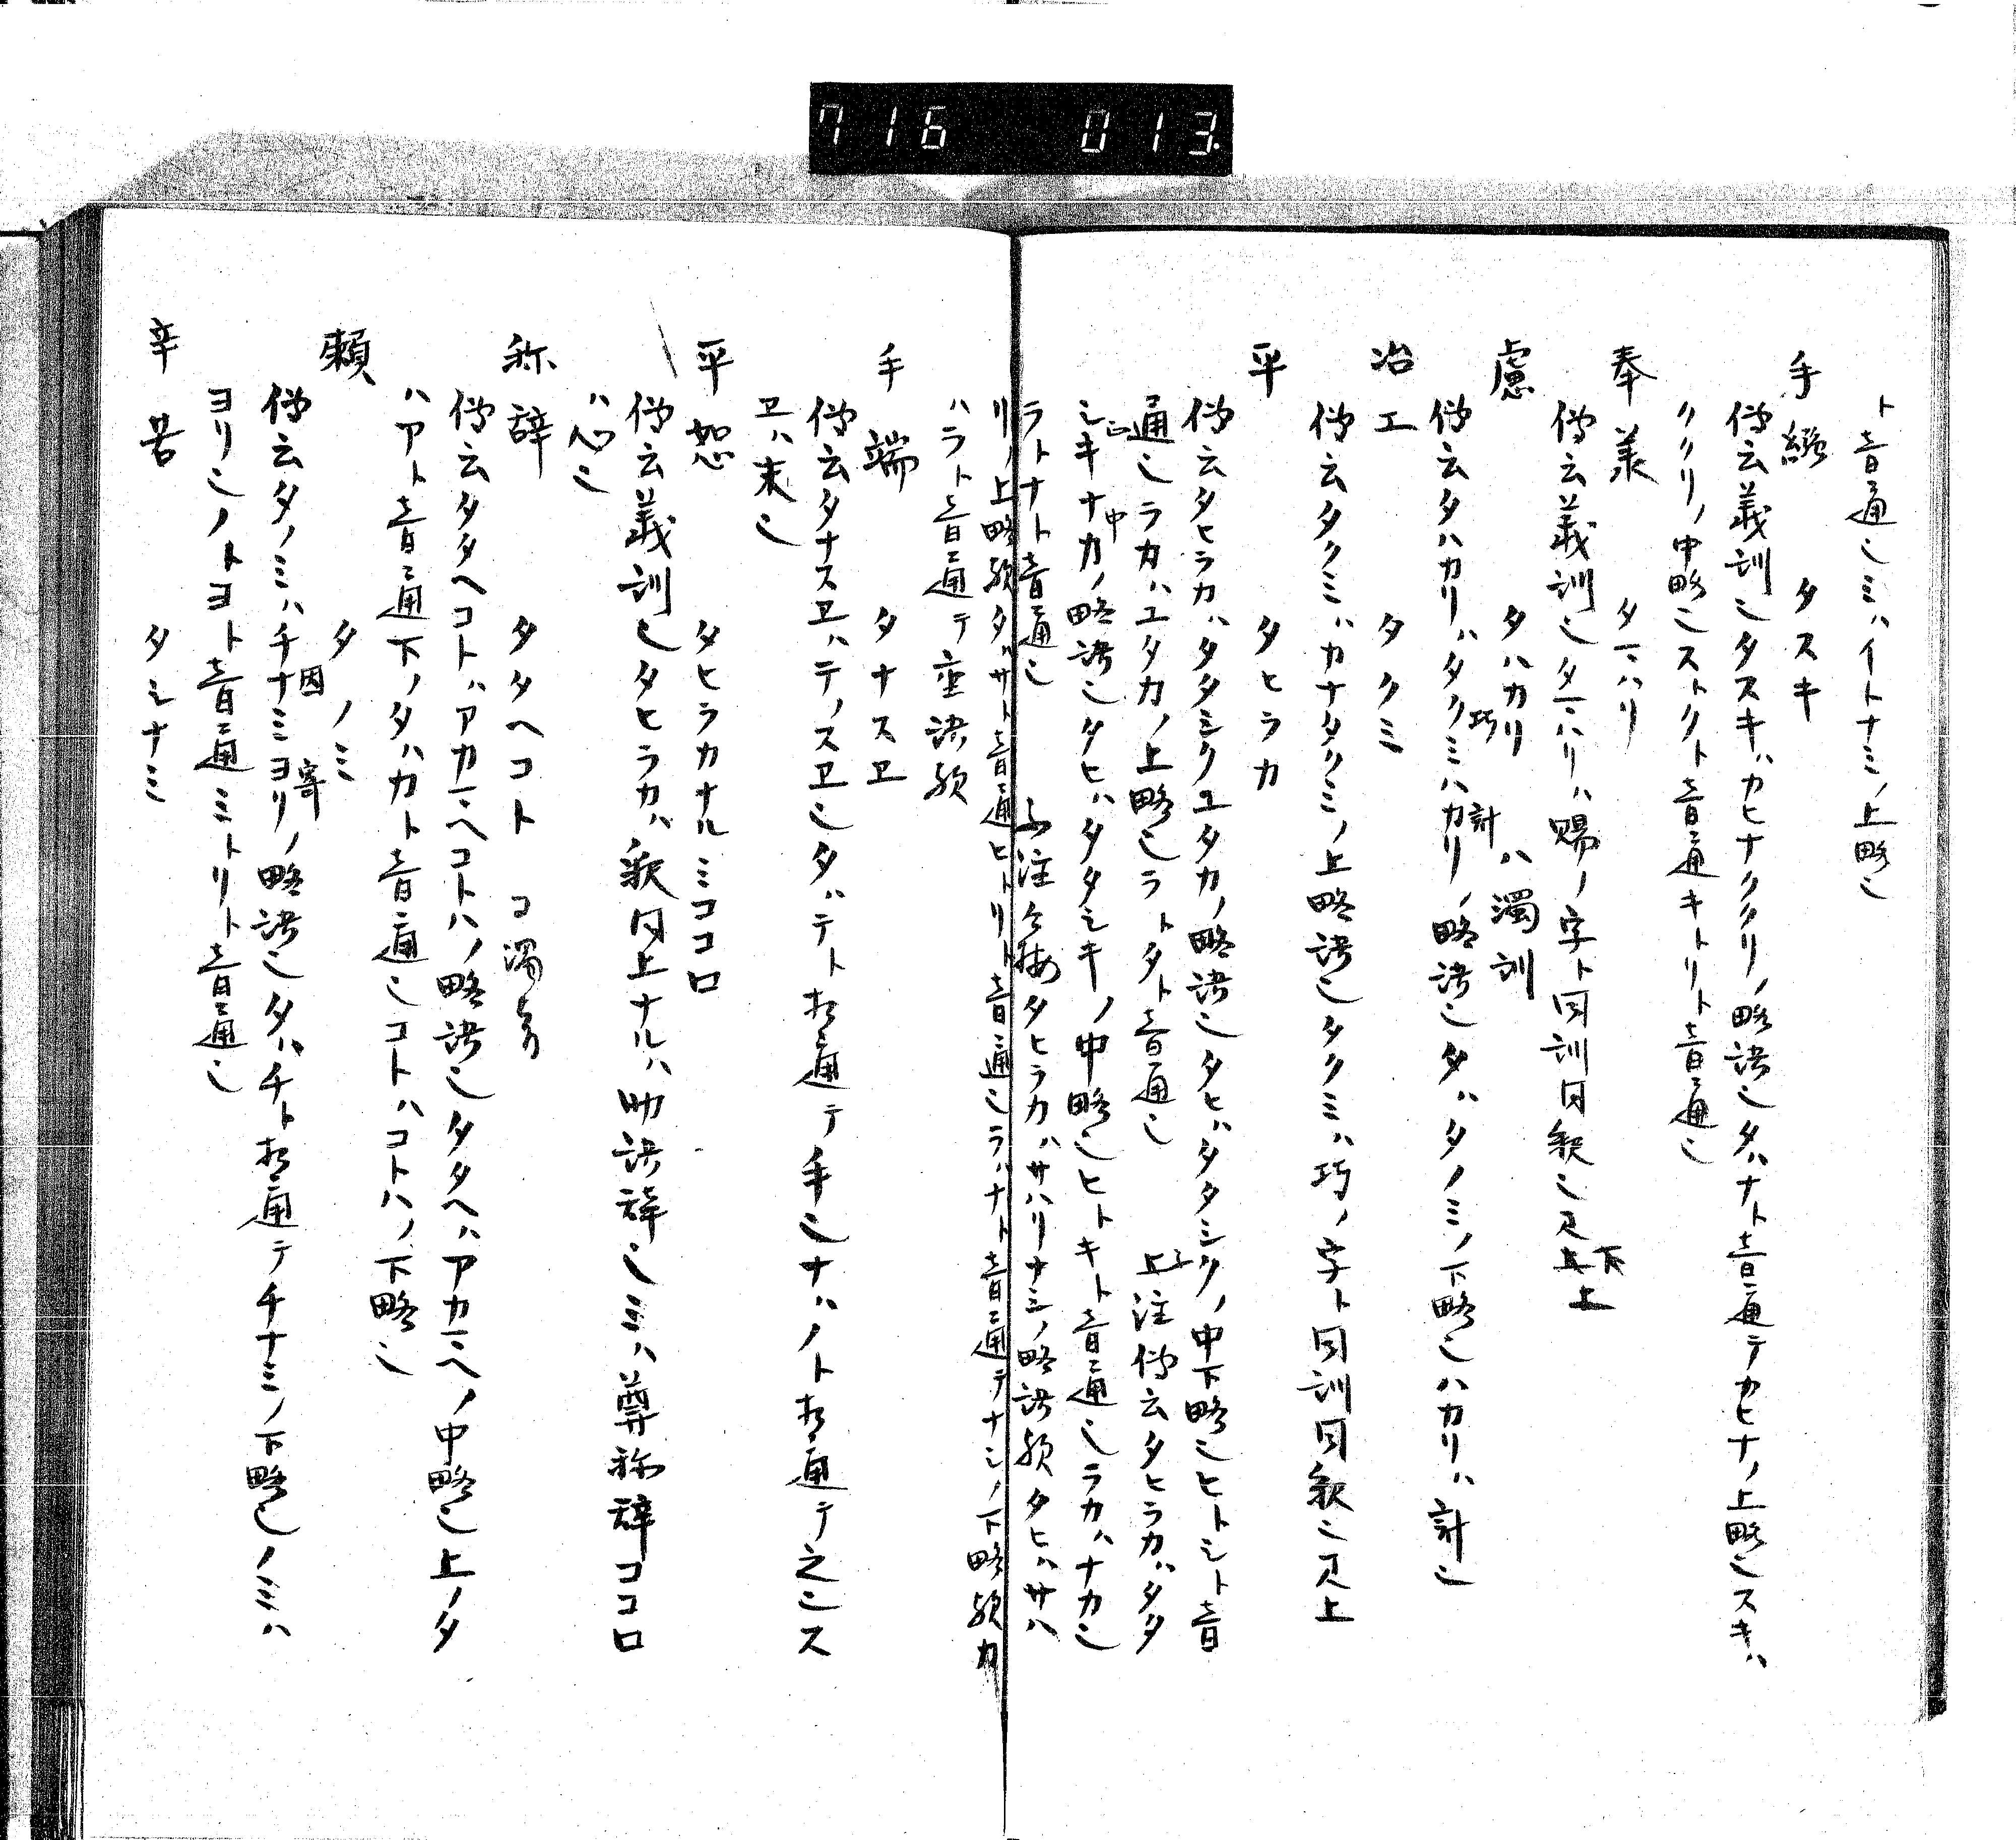 716 013
ト音通也ミハイトナミノ上略也
手繦 タスキ
僻云義訓也タスキハカヒナククリノ略語也タハナト音通テカヒナノ上略也スキハ
ククリノ中略也ストクト音通キトリト音通也
奉羕 タマハリ
僻云義訓也タマハリハ賜ノ字ト同訓同釈也又上下上
慮 タハカリ ハ濁訓
僻云タハカリハタクミハカリノ略語也タハタノミノ下略也ハカリハ計也
巧 計
冶工 タクミ
僻云タクミハカナタクミノ上略語也タクミハ巧ノ字ト同訓同釈也又上
平 タヒラカ
僻云タヒラカハタタシクユタカノ略語也タヒハタタシクノ中下略也ヒトシト音
通也ラカハユタカノ上略也ラトタト音通也 上注僻云タヒラカハタタ
シキナカノ略語也タヒハタタシキノ中略也ヒトキト音通也ラカハナカ也
正 中
ラトナト音通也 上注今按タヒラカハサハリナシノ略語歟タヒハサハ
リノ上略歟タハサト音通ヒトリト音通也ラハナト音通テナシノ下略歟カ
ハラト音通テ重語歟
手端 タナスヱ
僻云タナスヱハテノスヱ也タハテト相通テ手也ナハノト相通テ之也ス
ヱハ末也
平恕 タヒラカナルミココロ
僻云義訓也タヒラカハ釈同上ナルハ助語辞也ミハ尊称辞ココロ
ハ心也
称辞 タタヘコト コ濁音
僻云タタヘコトハアカマヘコトハノ略語也タタヘハアカマヘノ中略也上ノタ
ハアト音通下ノタハカト音通也コトハコトハノ下略也
頼 タノミ
僻云タノミハチナミヨリノ略語也タハチト相通テチナミノ下略也ノミハ
因 寄
ヨリ也ノトヨト音通ミトリト音通也
辛苦 タシナミ